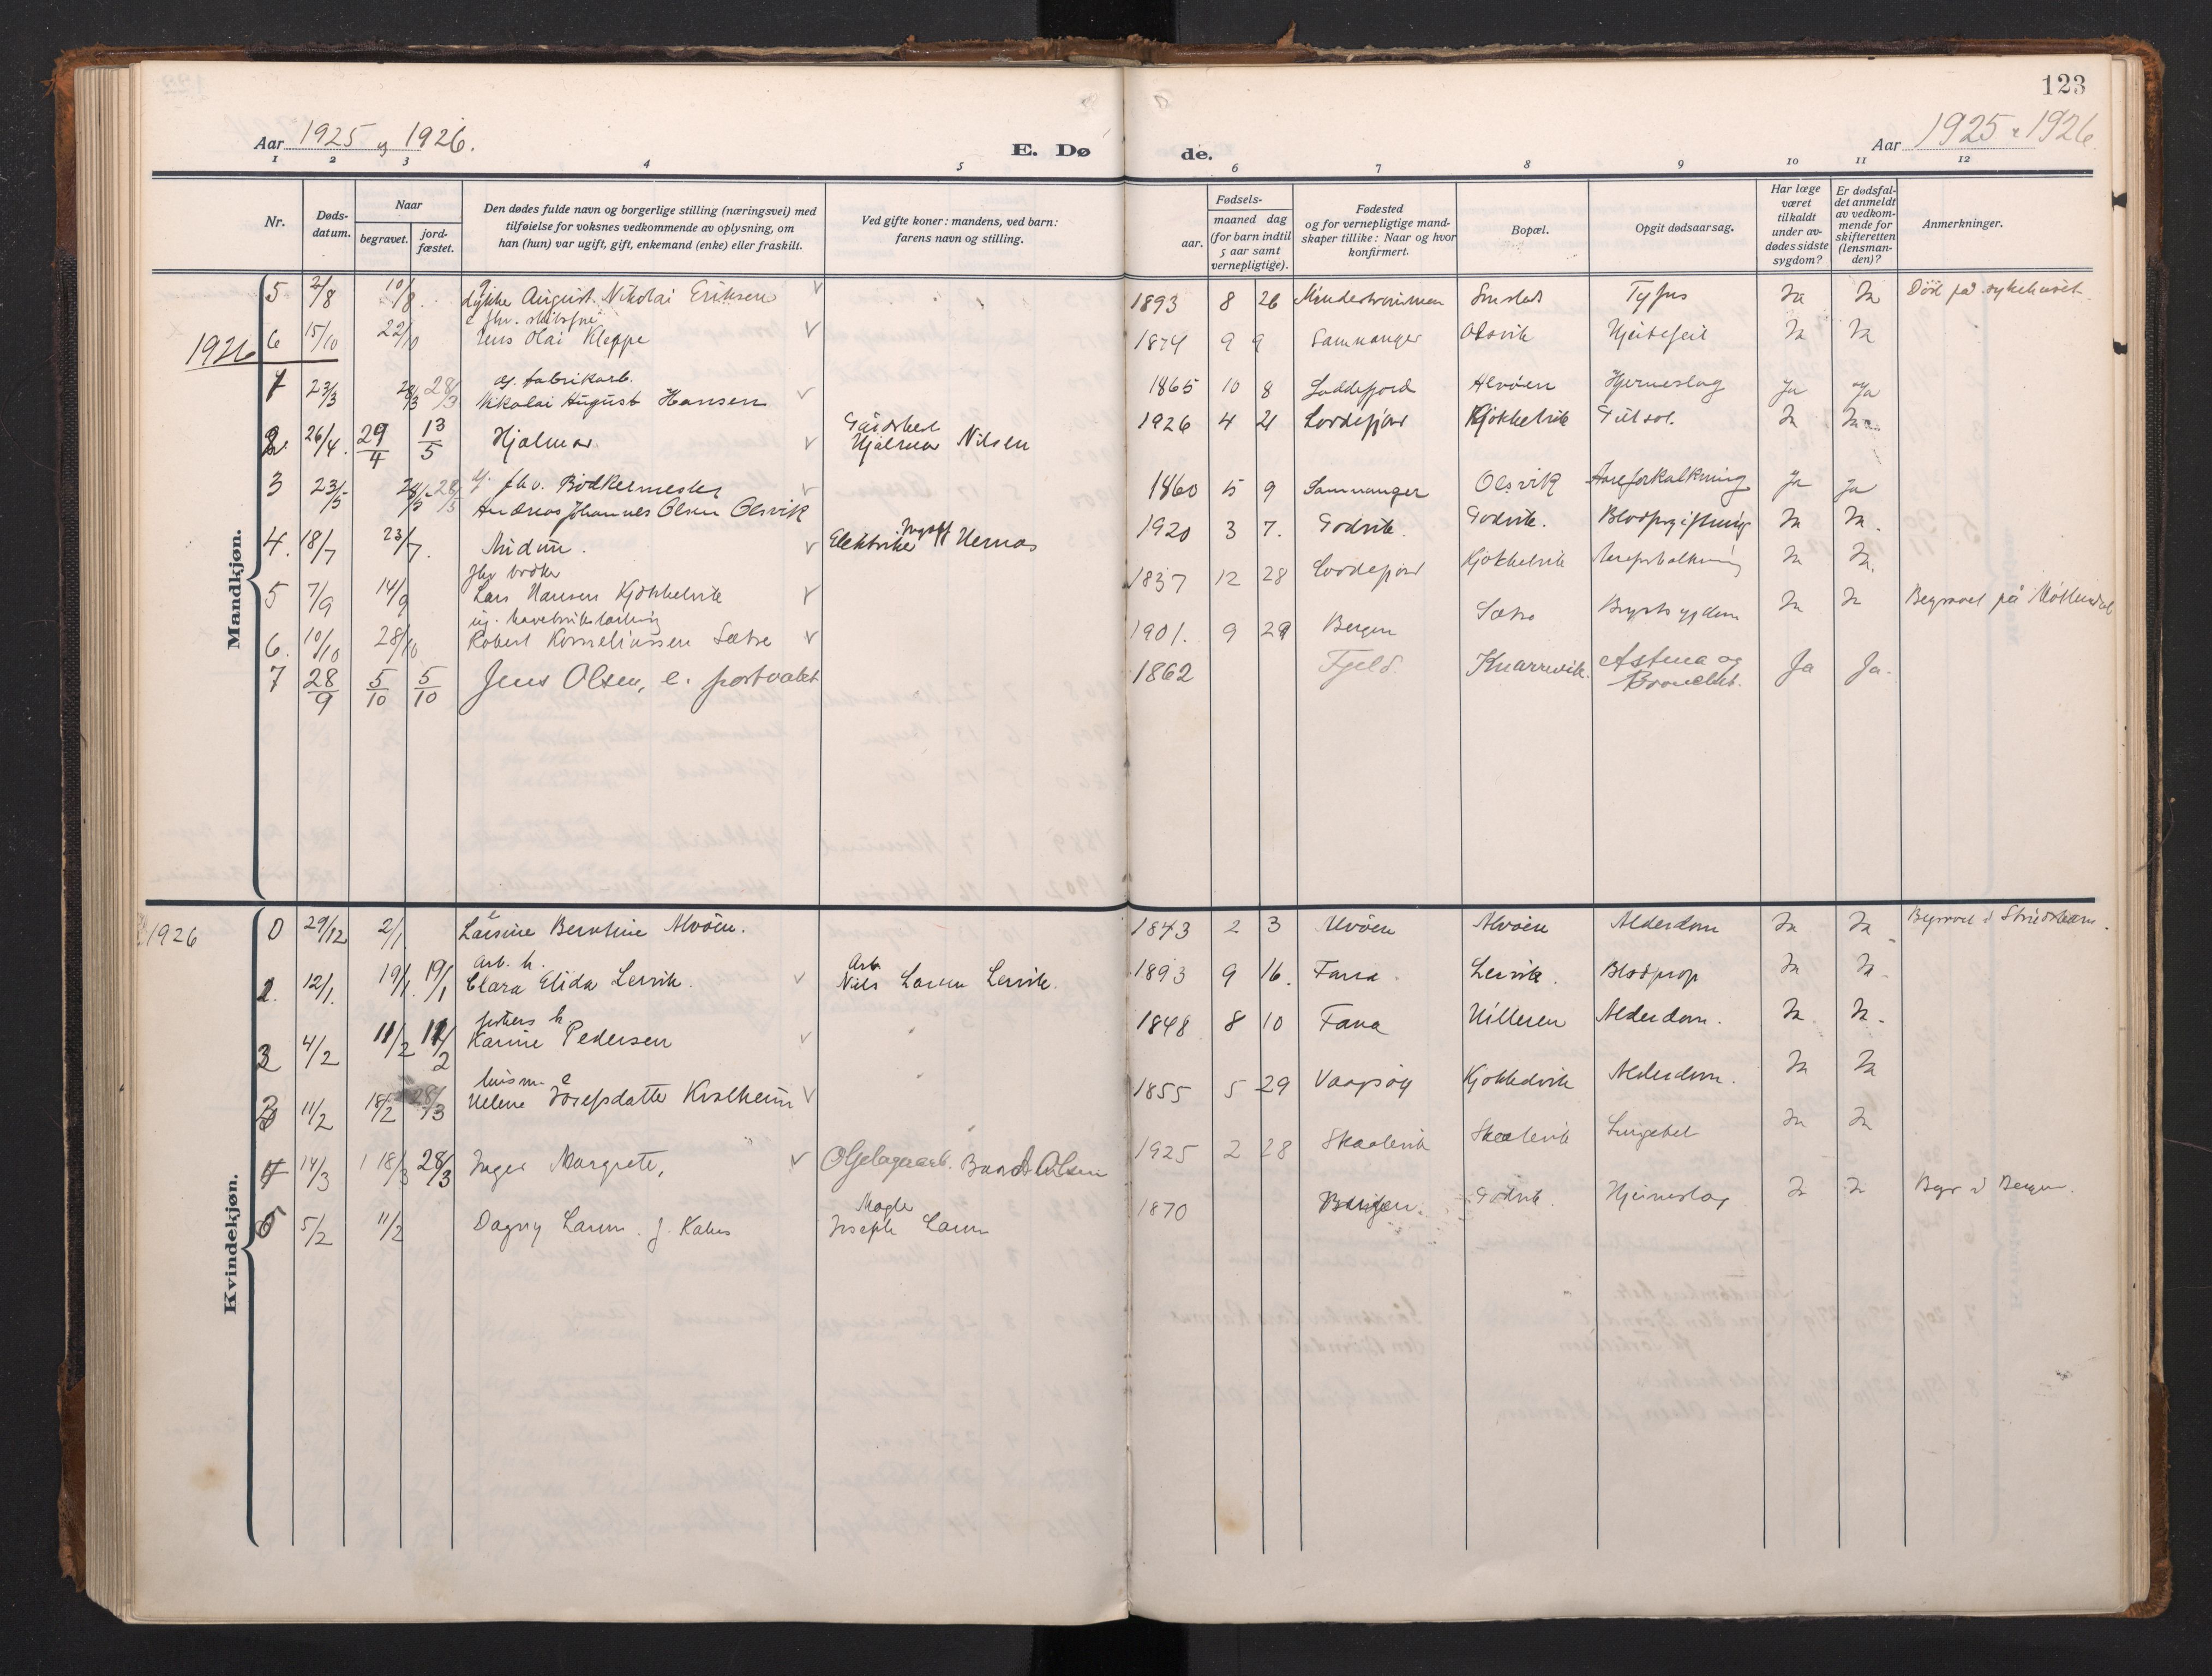 123
Aar 1925 og 1926.
E. Døde.
Aar 1925 & 1926
1 2 3 4 5 6 7 8 9 10 11 12
Nr.
Døds-
datum.
Naar
begravet.
jord-
fæstet.
Den dødes fulde navn og borgerlige stilling (næringsvei) med
tilføielse for voksnes vedkommende av oplysning, om
han (hun) var ugift, gift, enkemand (enke) eller fraskilt.
Ved gifte koner: mandens, ved barn:
farens navn og stilling.
Fødsels-
aar.
maaned dag
(for barn indtil
5 aar samt
vernepligtige).
Fødested
og for vernepligtige mand-
skaper tillike: Naar og hvor
konfirmert.
Bopæl.
Opgit dødsaarsag.
Har læge
været
tilkaldt
under av-
dødes sidste
sygdom?
Er dødsfal-
det anmeldt
av vedkom-
mende for
skifteretten
(lensman-
den)?
Anmerkninger.
Mandkjøn.
5 2/8 10/8. August Nikolai Eriksen 1893 8 26 Tyfus Ja Ja Död på sykehuset
6 15/10 22/10 Jens Olai Kleppe 1874 9 9 Samnanger Olsvik Hjertefeil Ja Ja
1926
g. fabrikarb.
1 23/3 28/3 28/3 Nikolai August Hansen 1865 10 8 Loddefjord Alvöen Hjerneslag Ja Ja
Gårdbest
2. 26/4. 29/4 13/5 Hjalmar Hjalmar Nilsen 1926 4 21 Loddefjord Kjökkelvik Ja Ja
g. fhv. Bödkermester
3 23/5 28/5 28/5 Andreas Johannes Olsen Olsvik 1860 5 9 Samnanger Olsvik Aareforkalkning Ja Ja
4. 18/7 23/7. Elektriker 1920 3 7. Godvik. Godvik. Blodforgiftning Ja Ja.
fhv bødker
5 7/9 14/9 Lars Hansen Kjökkelvik 1837 12 28 Loddefjord Kjökkelvik Aareforkalkning Ja Ja.
6. 10/10 28/10 Robert Korneliussen Sætre 1901. 9 29 Bergen Sætre Brystsygdom Ja Ja Begravet på Møllendal
7 28/9 5/10 5/10 Jens Olsen, e. 1862 Fjeld. Knarrevik. Astma og
Bronchit. Ja Ja.
Kvindekjøn.
1926 0 29/12 2/1 Berntine Alvöen. 1843 2 3 Alvöen Alvöen Alderdom Ja Ja
arb. h. Arb
1. 12/1. 19/1. 19/1 Clara Elida Lervik. Nils Lervik. 1893 9 16. Fana. Lervik. Blodprop Ja Ja.
2 4/2 11/2 11/2 Karine Pedersen 1848 8 10 Fana Hilleren Alderdom. Ja Ja.
husm. e
3 11/2 18/2 28/3 Helene Josefsdatter Kvalheim 1855 5 29 Vaagsöy Kjökkelvik Alderdom. Ja Ja
4 14/3 18/3 28/3 Inger Margrete, Olsen 1925 2 28 Skaalevik Skaalevik Ja Ja
Mægler
5 5/2 11/2 Dagny f. Joseph 1870 Bergen. Godvik. Hjerneslag Ja Ja Begr i Bergen.